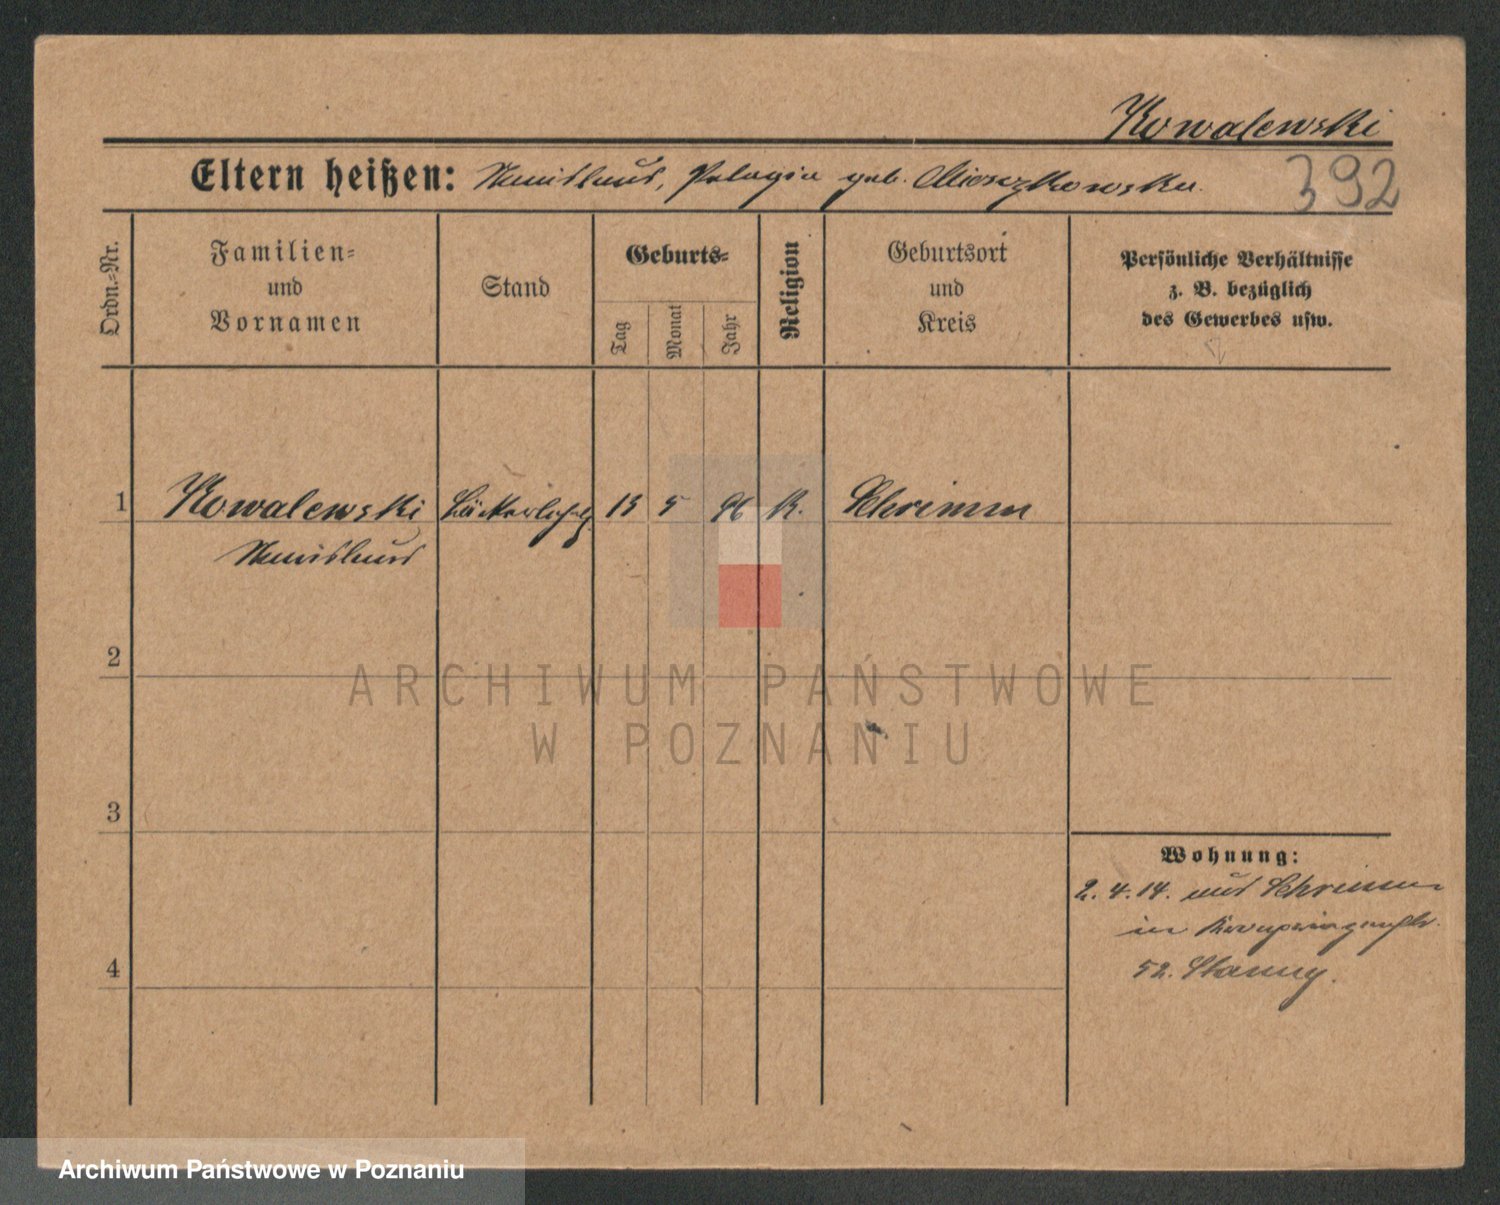 Kowalewski
Eltern heißen: Stanislaus, Pelagia geb. Mieszkowska.
392
Ordn.-Nr.
Familien-
und
Vornamen
Stand
Geburts-
Tag
Monat
Jahr
Religion
Geburtsort
und
Kreis
Persönliche Verhältnisse
z. B. bezüglich
des Gewerbes usw.
1 Kowalewski Bäckerlehrlg. 13 5 96 K. Schrimm
Stanislaus
2
ARCHIWUM PAŃSTWOWE
W POZNANIU
3
Wohnung:
2. 4. 14. aus Schrimm
in
4
52.
Archiwum Państwowe w Poznaniu